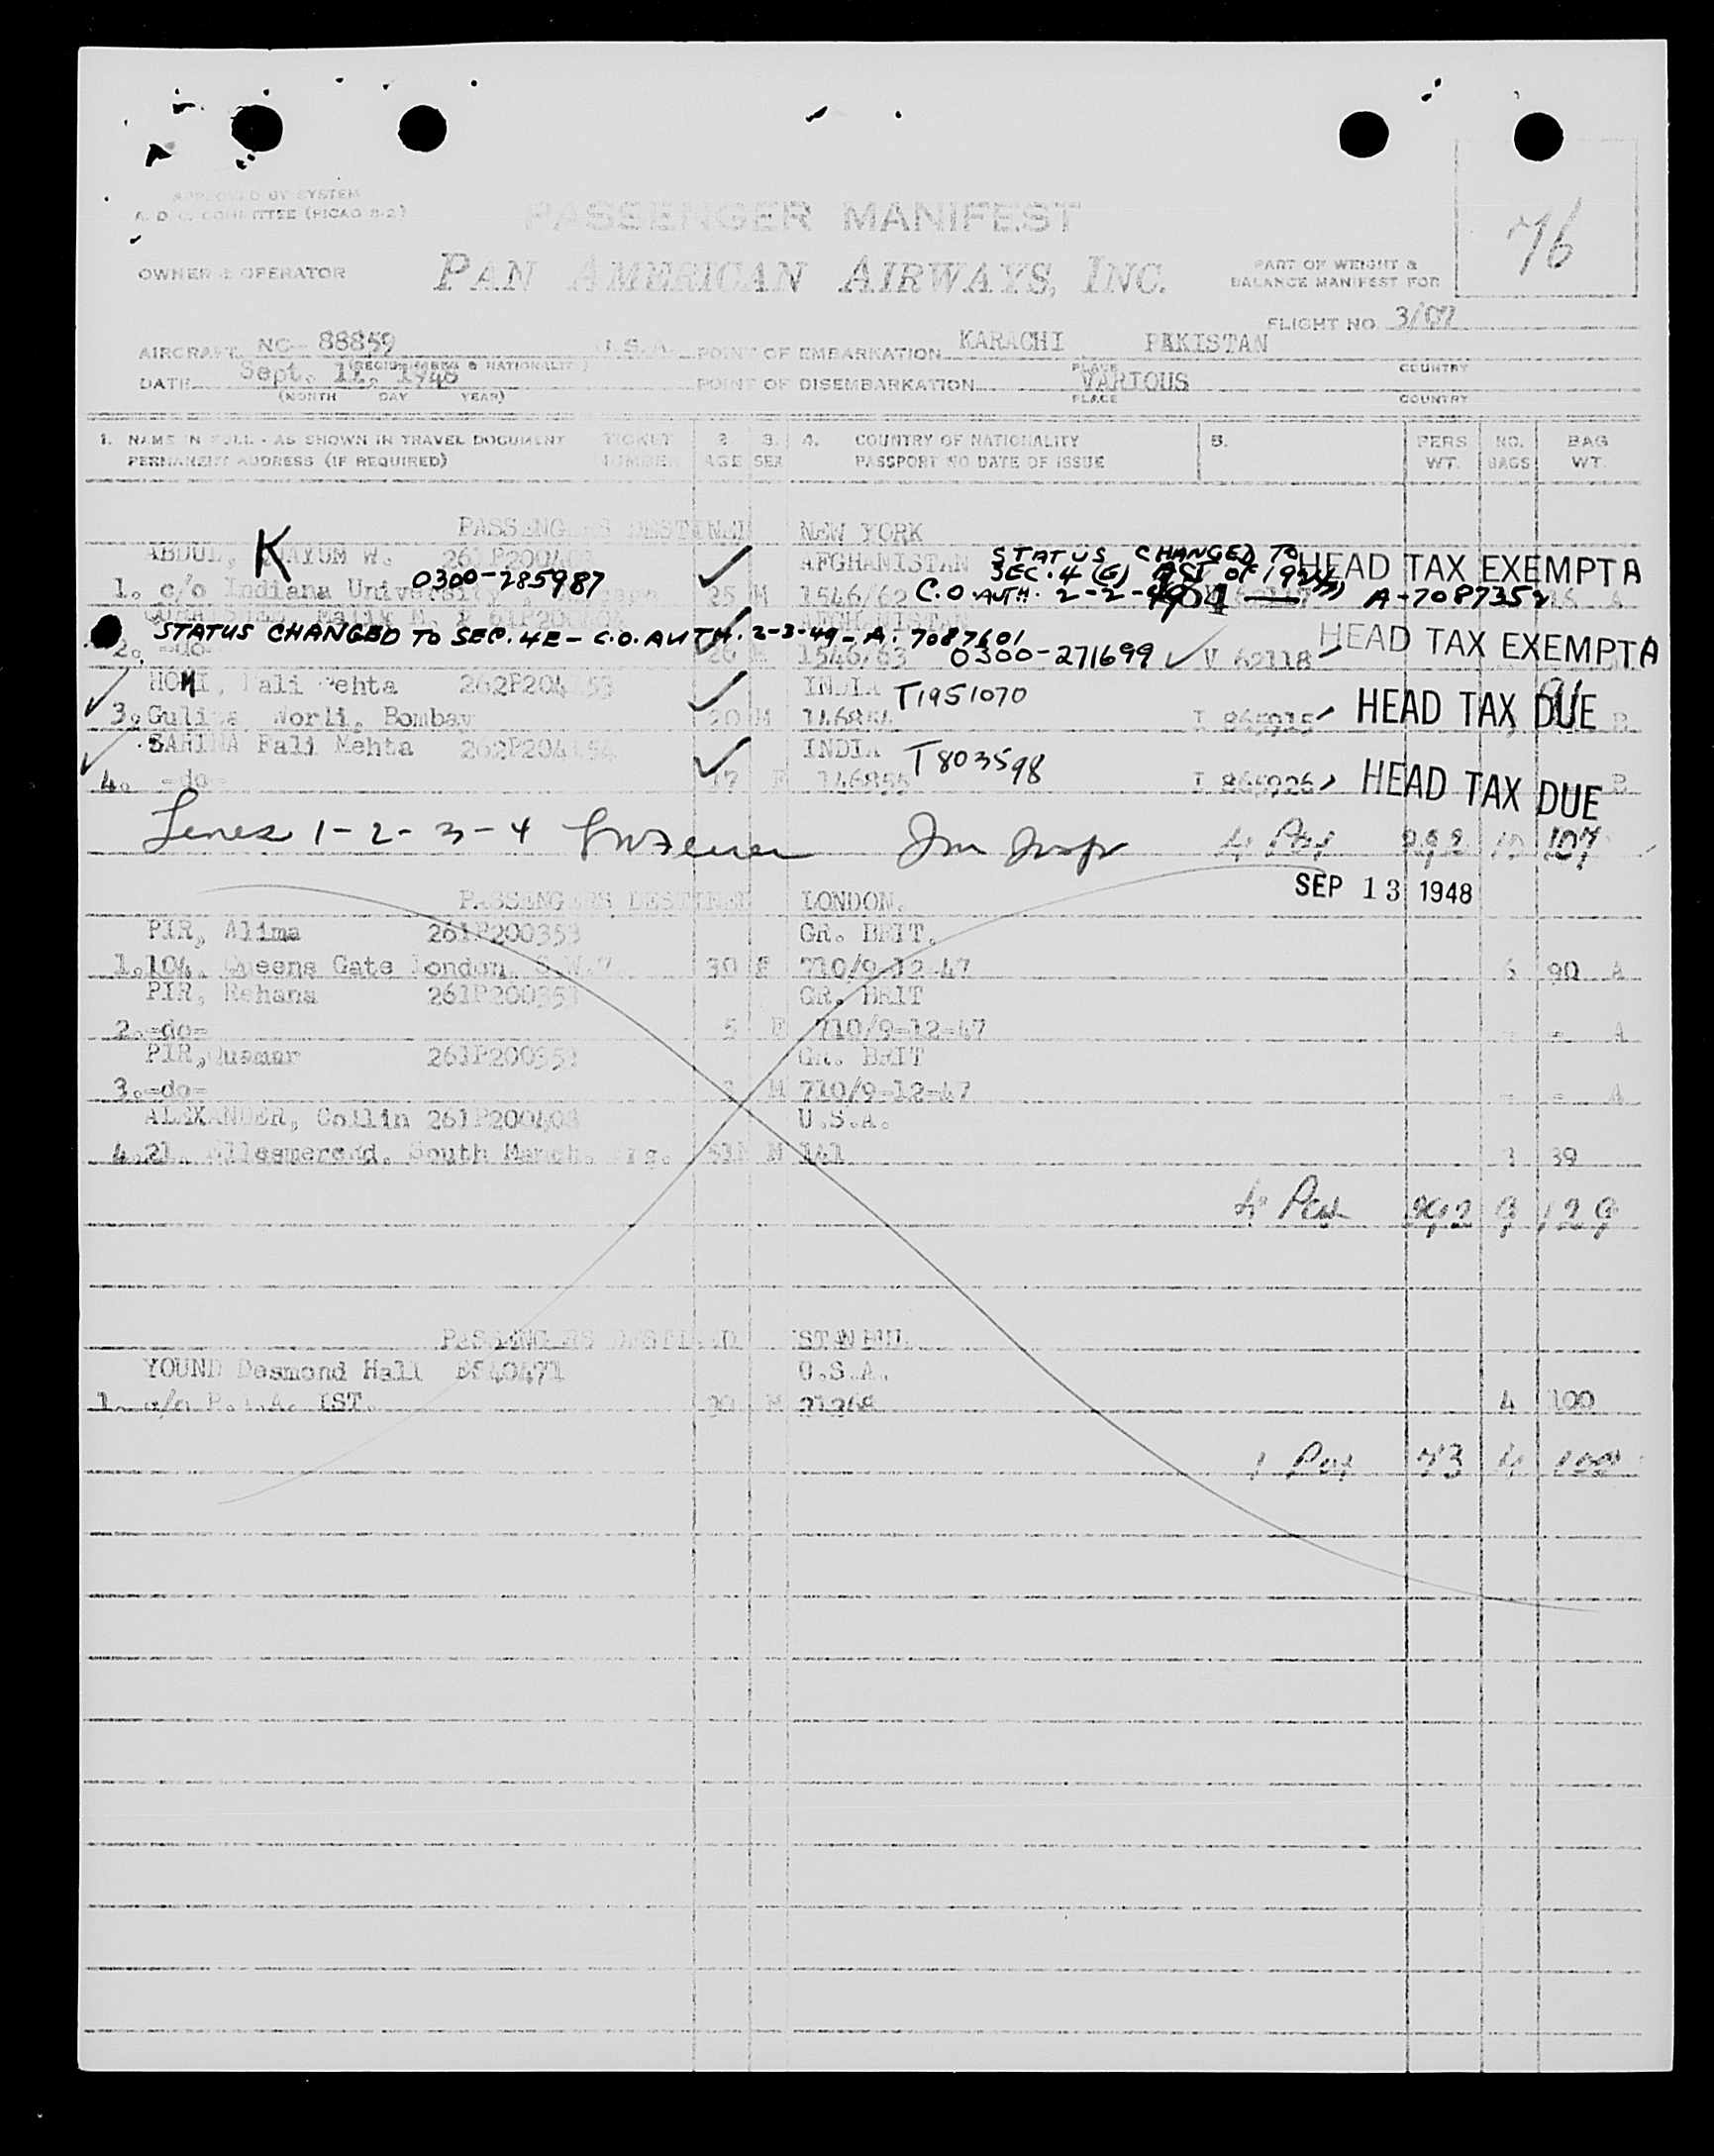 A. D. C. COMMITTEE (HICAO 8-2)
PASSENGER MANIFEST
76
OWNER & OPERATOR
PAN AMERICAN AIRWAYS, INC.
PART OF WEIGHT &
BALANCE MANIFEST FOR
FLIGHT NO 3/07
AIRCRAFT NC- 88859 U.S.A. POINT OF EMBARKATION KARACHI PAKISTAN
PLACE COUNTRY
DATE Sept. 1948 POINT OF DISEMBARKATION VARIOUS
(MONTH DAY YEAR) PLACE COUNTRY
1. NAME IN FULL - AS SHOWN IN TRAVEL DOCUMENT TICKET 2. 3. 4. COUNTRY OF NATIONALITY 5. PERS NO. BAG
PERMANENT ADDRESS (IF REQUIRED) NUMBER AGE SEX PASSPORT NO DATE OF ISSUE WT. BAGS WT.
PASSENGERS DESTINED NEW YORK
ABDUL, KAYUM W. AFGHANISTAN STATUS CHANGED TO HEAD TAX EXEMPT A
SEC. 4 (E) ACT OF 1924
1. c/o Indiana University 0300-285987 25 M 1546/62 C.O. AUTH. 2-2-49 A-7087352
AFGHANISTAN
STATUS CHANGED TO SEC. 4E - C.O. AUTH. 2-3-49 - A. 7087601 HEAD TAX EXEMPT A
2. -do- 26 M 1546/63 0300-271699 V 62118
HOMI, Fali Mehta INDIA T1951070 HEAD TAX DUE
3. Worli, Bombay 20 M 146854 B
SAHINA Fali Mehta INDIA T803598
4. -do- 17 F 146855 I 865926 HEAD TAX DUE B
Lines 1-2-3-4 Imm Inspr 4 Pax 107
SEP 13 1948
PASSENGERS DESTINED LONDON.
PIR, Alima 261P200353 GR. BRIT.
1. 104. Queens Gate London, S.W.7. 30 F 710/9-12-47 6 90 A
PIR, Rehana 261P200353 GR. BRIT
2. -do- 5 F 710/9-12-47 - - A
PIR, 261P200353 GR. BRIT
3. -do- M 710/9-12-47 - - A
ALEXANDER, Collin 261P200408 U.S.A.
4. 21. South Manch. M 141 3 39
4 Pax 392 9 129
PASSENGERS DESTINED ISTANBUL
YOUND Desmond Hall U.S.A.
1. c/o IST. 30 M 4 100
1 Pax 73 4 100